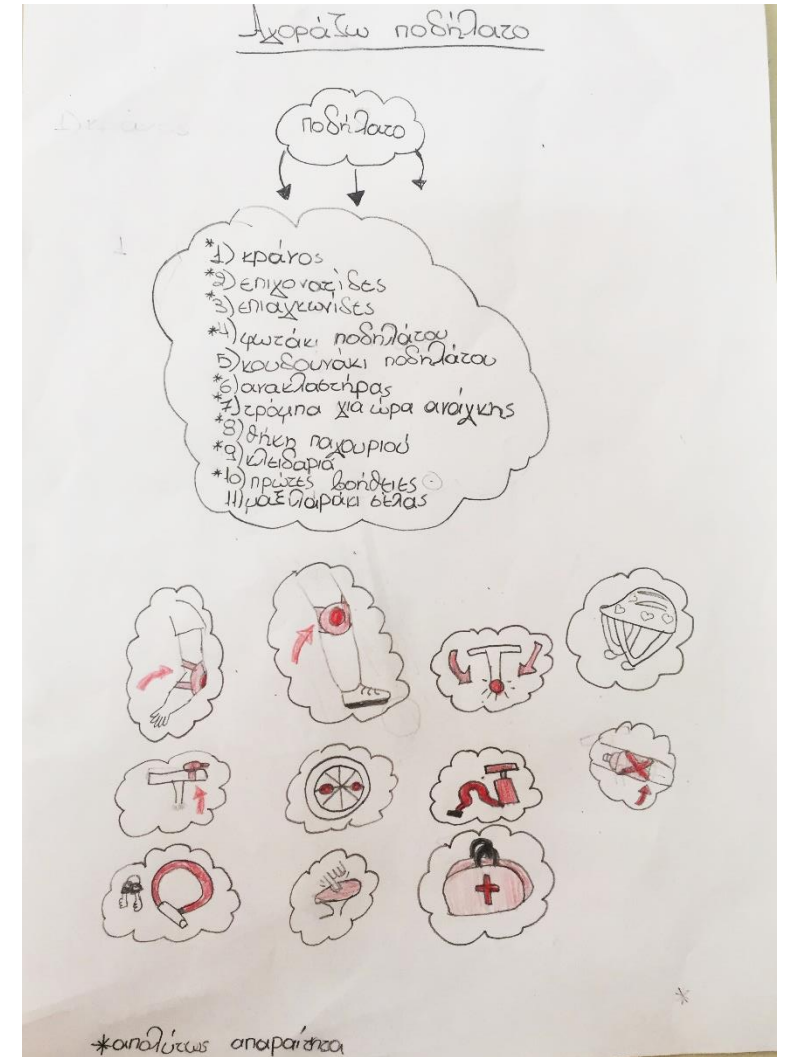 Αγοράζω ποδήλατο
ποδήλατο
*1) κράνος
*2) επιγονατίδες
*3) επιαγκωνίδες
*4) φωτάκι ποδηλάτου
5) κουδουνάκι ποδηλάτου
*6) ανακλαστήρας
*7) τρόμπα για ώρα ανάγκης
*8) θήκη παγουριού
*9) κλειδαριά
*10) πρώτες βοήθειες
11) μαξιλαράκι σέλας
*
*απολύτως απαραίτητα